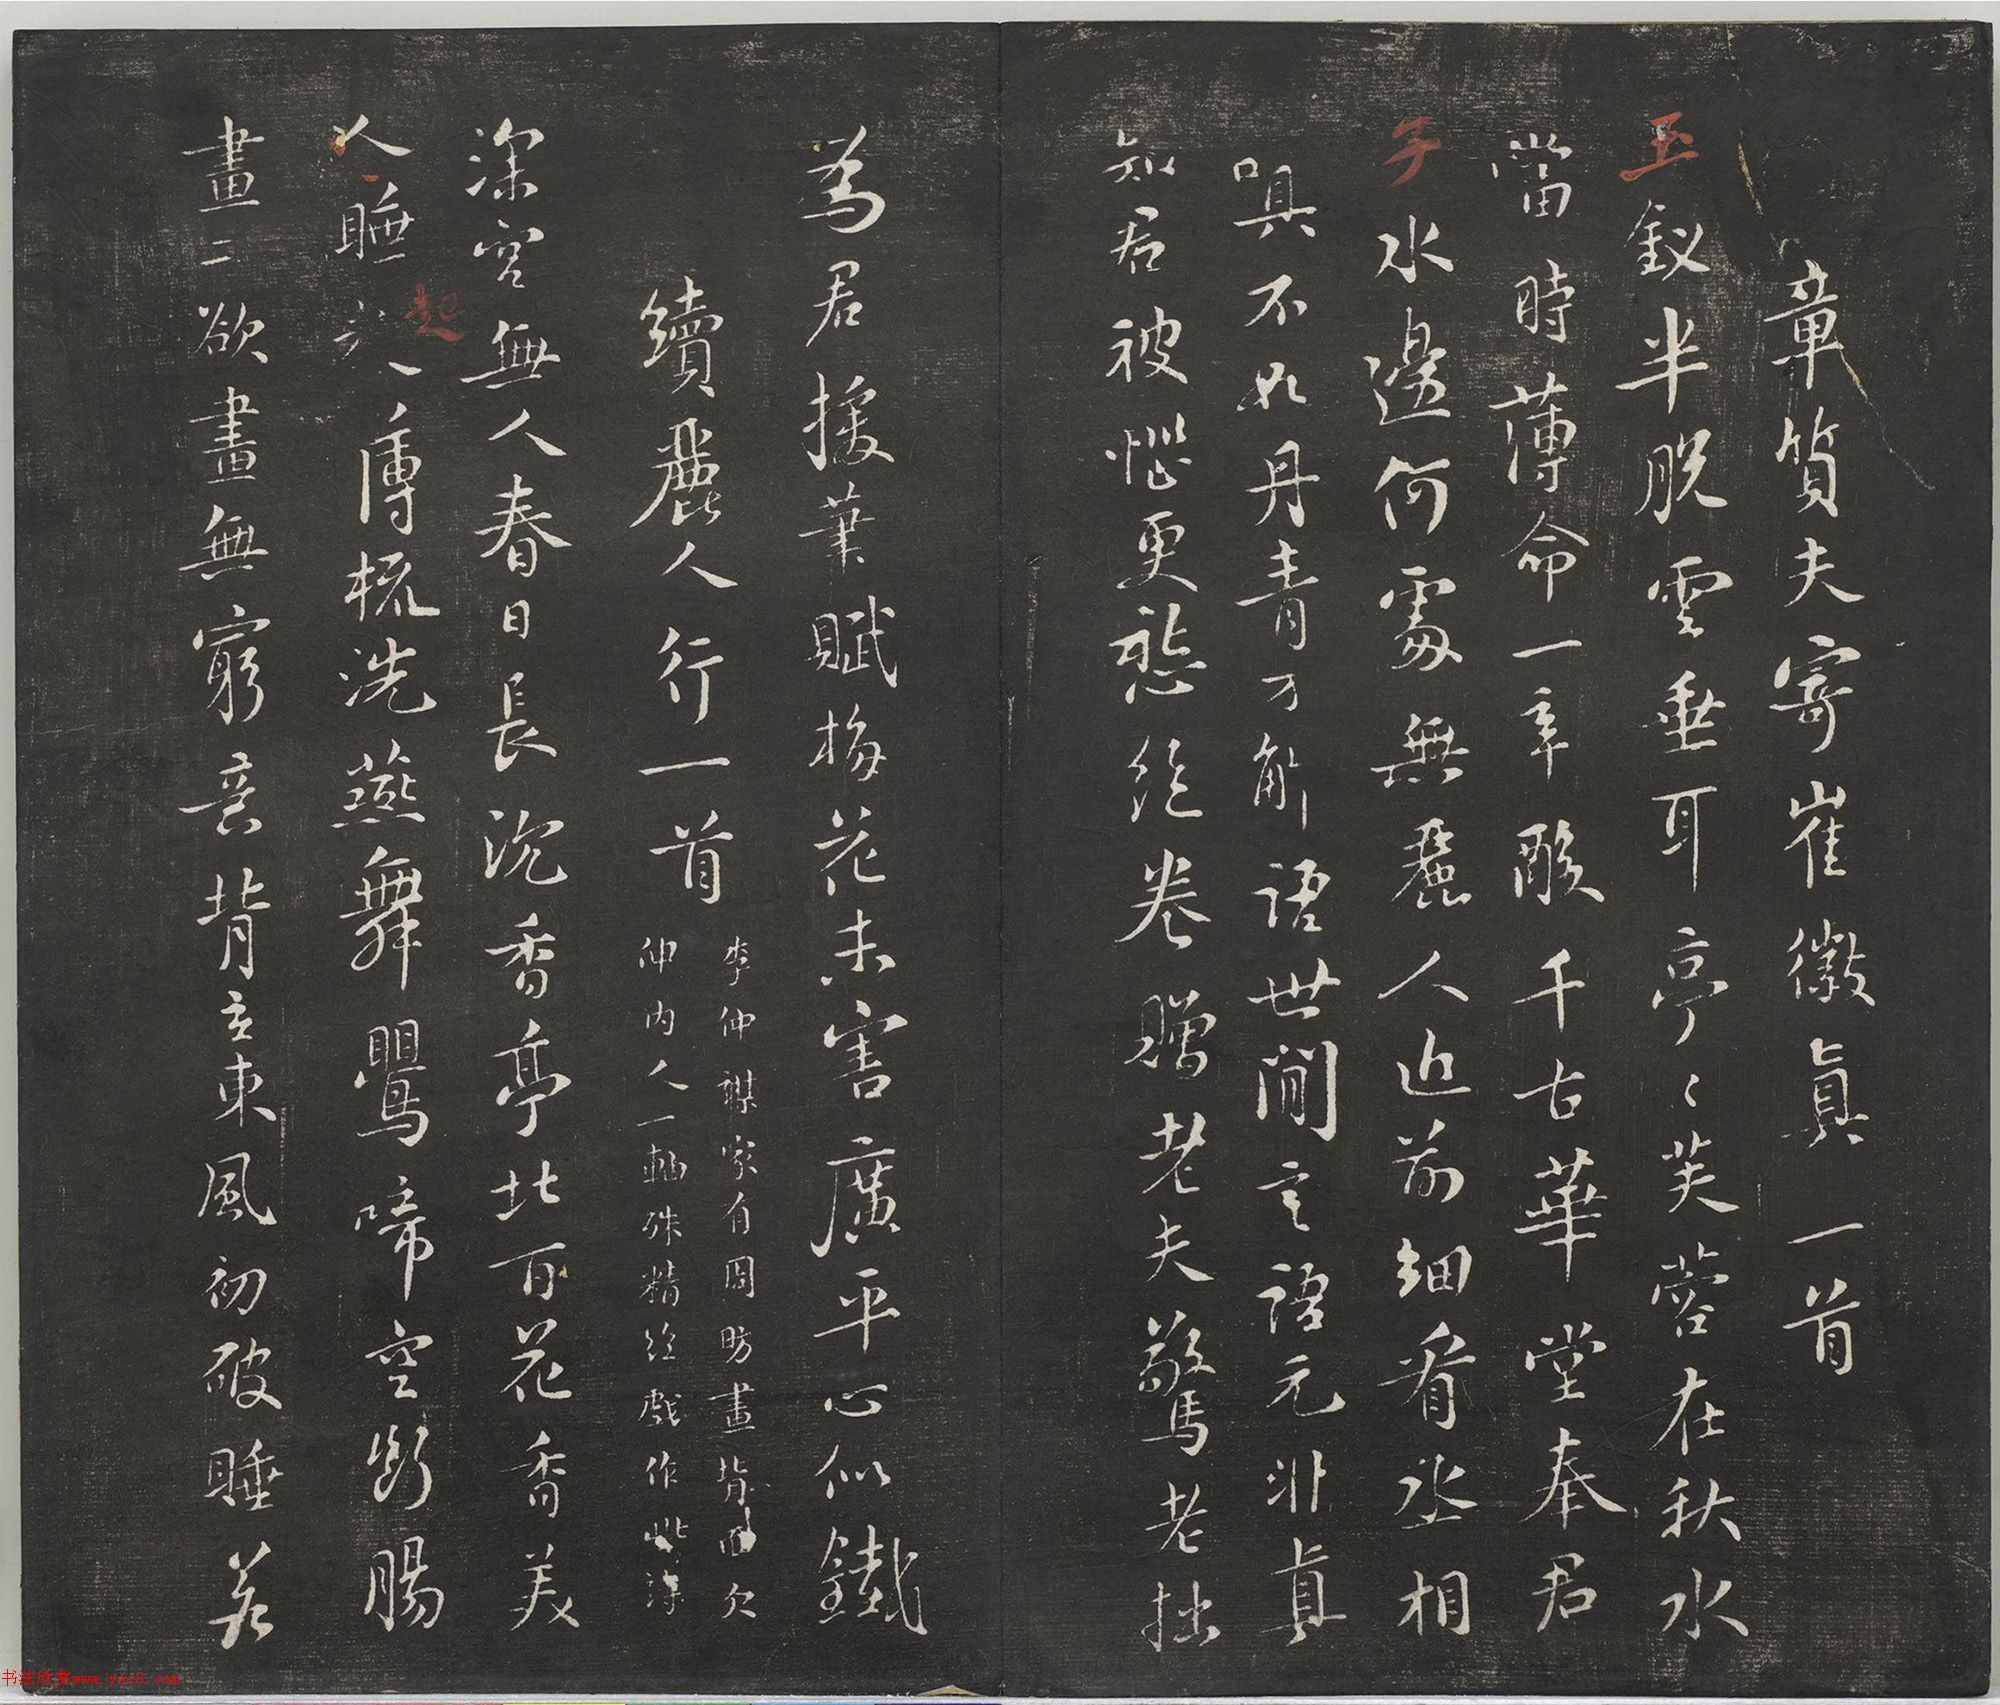 章質夫寄崔徽真一首
玉釵半脫雲垂耳亭〻芙蓉在秋水
當時薄命一辛酸千古華堂奉君
子水邊何處無麗人近前細看丞相
嗔不如丹青不解語世間言語元非真
知君被惱更愁絕卷贈老夫驚老拙
為君援筆賦梅花未害廣平心似鐵
續麗人行一首
李仲謀家有周昉畫背面欠
伸內人一軸殊精絕戲作此詩
深宮無人春日長沉香亭北百花香美
人睡起薄梳洗燕舞鶯啼空斷腸
畫工欲畫無窮意背立東風初破睡若
书法欣赏www.yac8.com